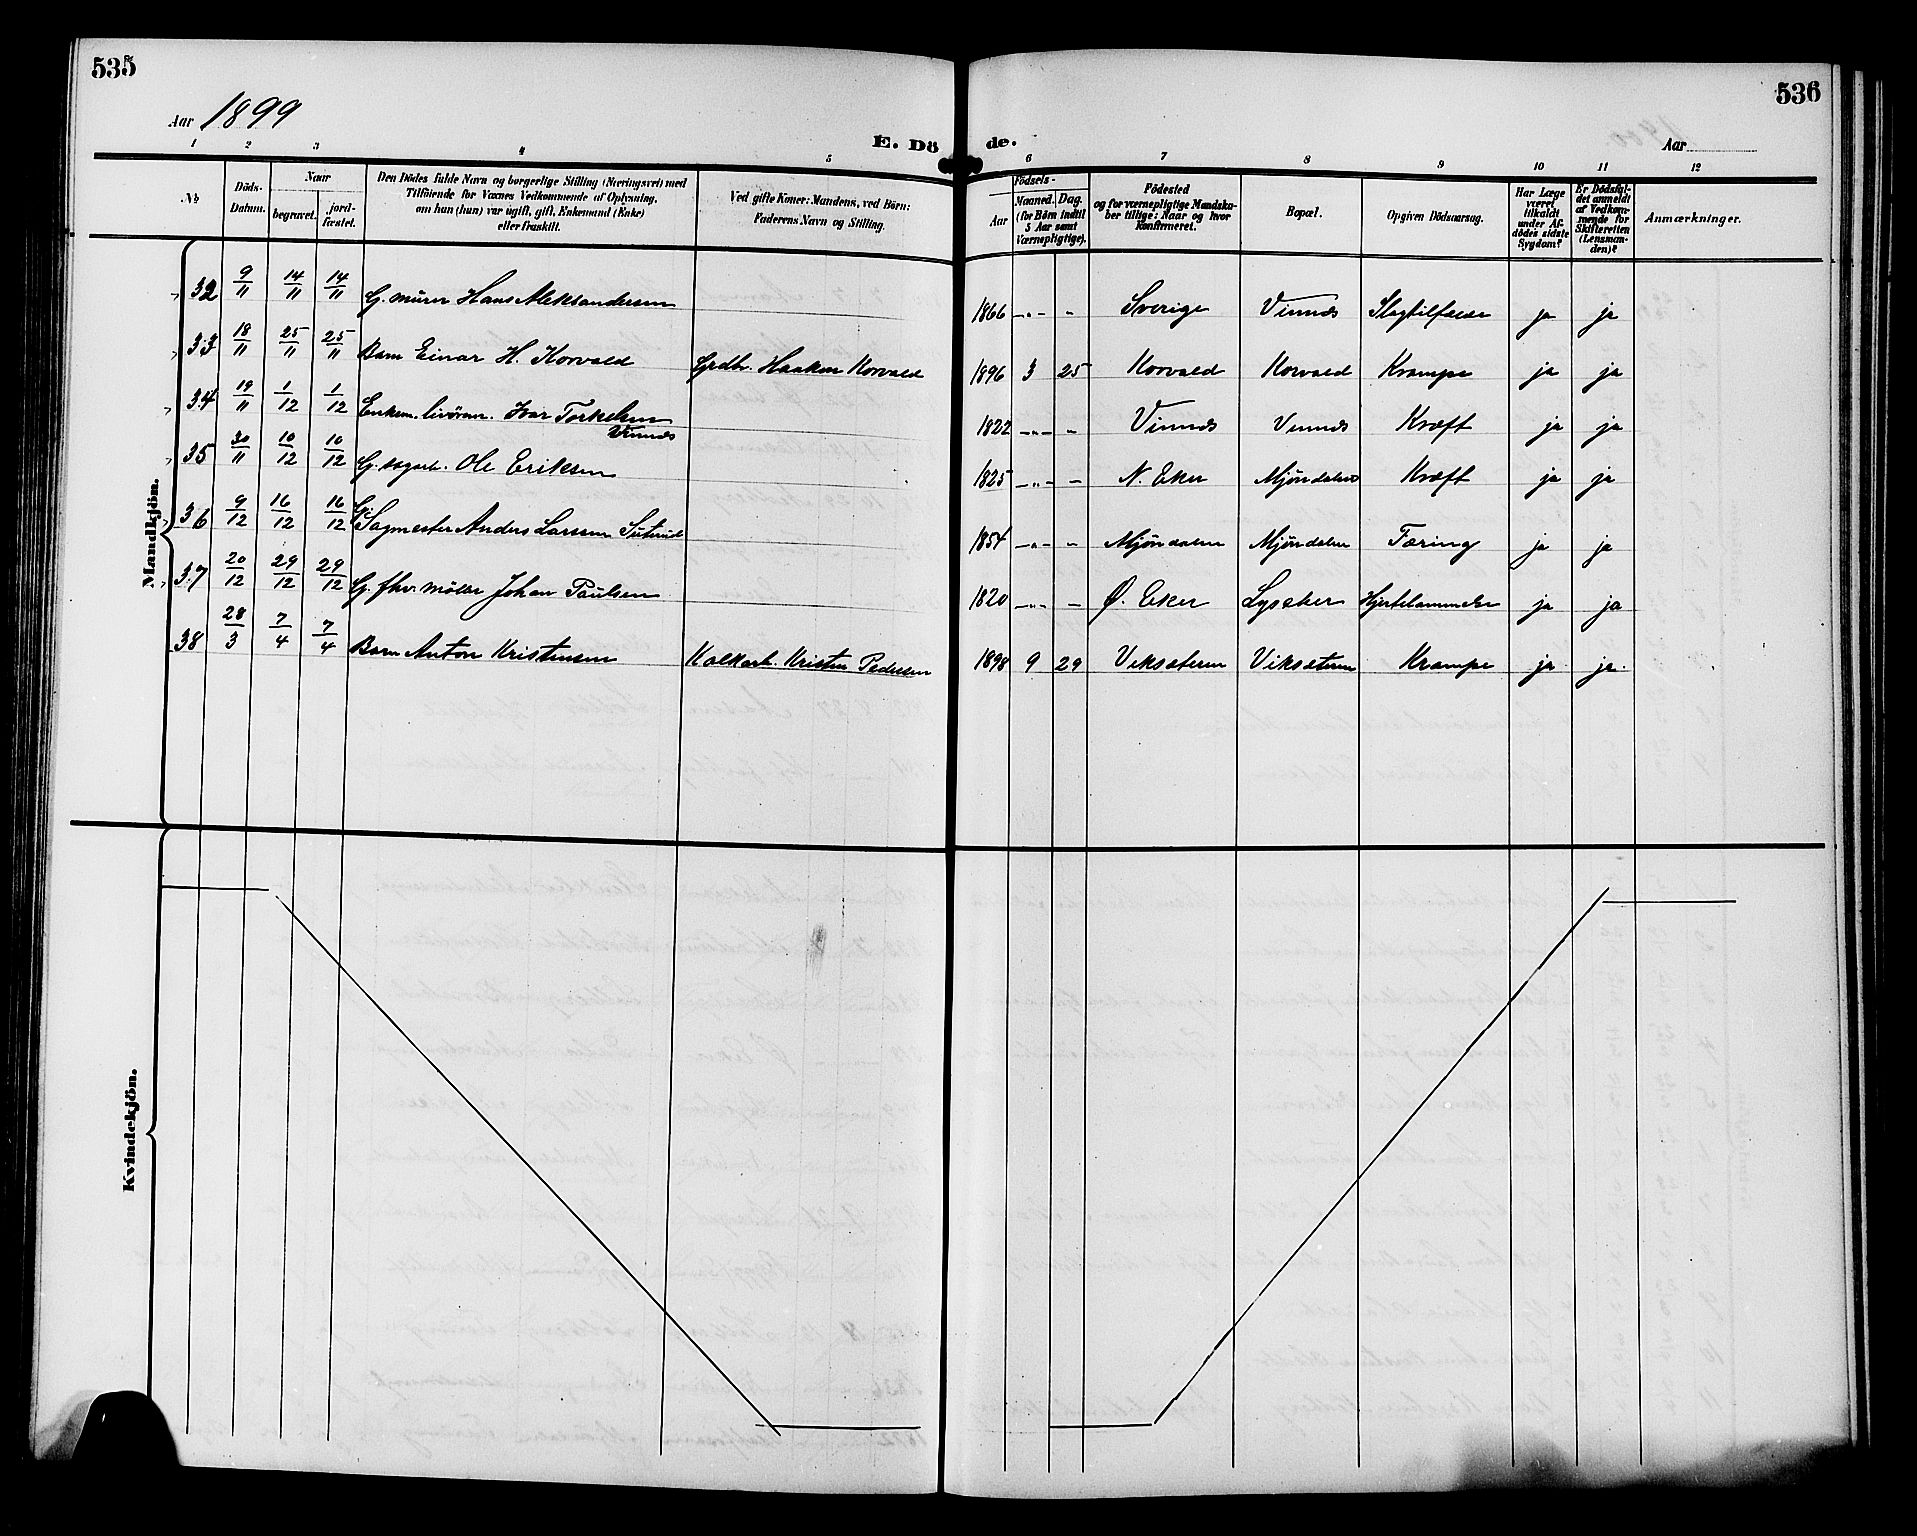 535
536
Aar 1899
Aar
E. Dö de.
1 2 3 4 5 6 7 8 9 10 11 12
No
Döds-Datum.
Naar
begravet.
jord-fæstet.
Den Dödes fulde Navn og borgerlige Stilling (Næringsvei) med
Tilföiende for Voxnes Vedkommende af Oplysning,
om han (hun) var ugift, gift, Enkemand (Enke)
eller fraskilt.
Ved gifte Koner: Mandens, ved Börn:
Faderens Navn og Stilling.
Födsels-
Aar
Maaned. Dag.
(for Börn indtil
5 Aar samt
Værnepligtige).
Födested
og for værnepligtige Mandska-
ber tillige: Naar og hvor
konfirmeret.
Bopæl.
Opgiven Dödsaarsag.
Har Læge
været
tilkaldt
under Af-
dödes sidste
Sygdom?
Er Dödsfal-
det anmeldt
af Vedkom-
mende for
Skifteretten
(Lensman-
den)?
Anmærkninger.
Mandkjön.
32 9/11 14/11 14/11 G. murer Hans Aleksandersen 1866 -"- " Sverige Vinnæs Slagtilfælde ja ja
33 18/11 25/11 25/11 Barn Einar H. Korvald Grdbr. Haaken Korvald 1896 3 25 Korvald Korvald Krampe ja ja
34 19/11 1/12 1/12 Enkem. livöran. Ivar Torkelsen Vinnæs 1822 -"- " Vinnæs Vinnæs Kræft ja ja
35 30/11 10/12 10/12 G. sagarb. Ole Eriksen 1825 -"- - N. Eker Mjøndalen Kræft ja ja
36 9/12 16/12 16/12 G. Sagmester Anders Larssen Suterud 1854 -"- " Mjøndalen Mjøndalen Tæring ja ja
37 20/12 29/12 29/12 G. fhv. møller Johan Paulsen 1820 -"- - Ø. Eker Lysaker Hjertelammelse ja ja
38 28/3 7/4 7/4 Barn Anton Kristensen Kalkarb. Kristen Pedersen 1898 9 29 Viksæteren Viksæteren Krampe ja ja.
Kvindekjön.